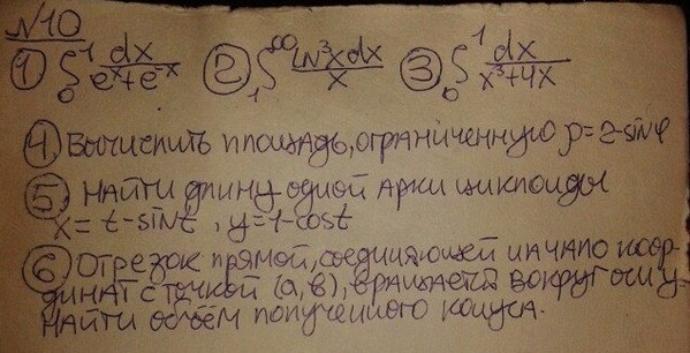 №10
① ∫₀¹ dx/(eˣ+e⁻ˣ) ② ∫₁^∞ ln³x dx/x ③ ∫₀¹ dx/(x³+4x)
④ Вычислить площадь, ограниченную ρ=2-sinφ
⑤ Найти длину одной арки циклоиды
x=t-sint, y=1-cost
⑥ Отрезок прямой, соединяющей начало коор-
динат с точкой (a,b), вращается вокруг оси y.
Найти объём полученного конуса.